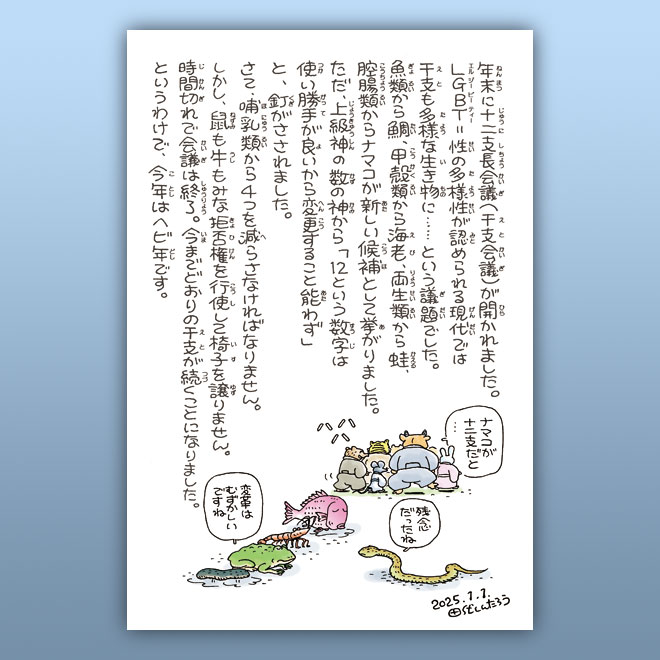 年末に十二支長会議(干支会議)が開かれました。
LGBT=性の多様性が認められる現代では
干支も多様な生き物に……という議題でした。
魚類から鯛、甲殻類から海老、両生類から蛙、
腔腸類からナマコが新しい候補として挙がりました。
ただ、上級神の数の神から「12という数字は
使い勝手が良いから変更すること能わず」
と、釘がさされました。
さて、哺乳類から4つを減らさなければなりません。
しかし、鼠も牛もみな拒否権を行使して椅子を譲りません。
時間切れで会議は終了。今までどおりの干支が続くことになりました。
というわけで、今年はヘビ年です。
ナマコが
十二支だと
…
残念
だったね
変革は
むずかしい
ですね
2025.1.1.